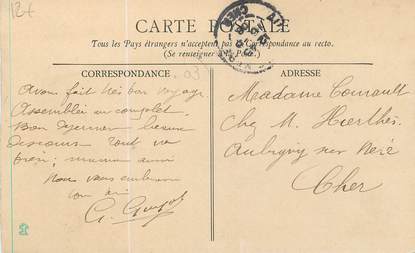 12+
CARTE POSTALE
Tous les Pays étrangers n'acceptent pas la Correspondance au recto.
(Se renseigner à la Poste.)
CORRESPONDANCE
ADRESSE
Avons fait très bon voyage.
Assemblée au complet.
Bon dejeuner
Discours Tout va
bien; maman aussi
Nous vous embrassons
G. Guyot
Madame
Chez M. Hierthes
Aubigny sur Nère
Cher